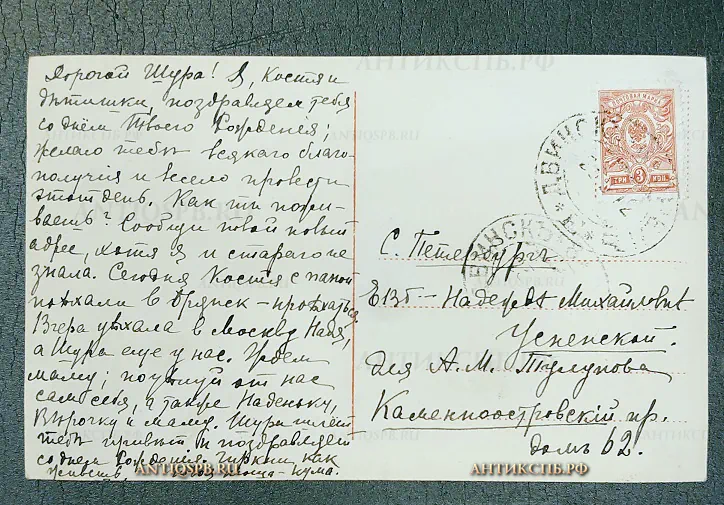 Дорогой Шура! Я, Костя и
дѣтишки, поздравляем тебя
со днём Твоего Рожденія,
желаю тебѣ всякаго благо-
получія и весело провести
этот день. Как ти пожи-
ваешь? Сообщи твой новый
адрес, хотя я и стараго не
знала. Сегодня Костя с папой
поѣхали в Брянск - проѣхаться
Вчера уѣхала в Москву Надя,
а Шура еще у нас. Ждем
маму; поцѣлуй от нас
сам себя, а также Наденьку,
Вѣрочку и маму. Шура шлёт
тебѣ привѣт и поздравляет
со днем Рожденія. Чиркни как
живешь, кума.
ПОЧТОВАЯ МАРКА
3
ТРИ КОП
ДВИНСК
ДВИНСКЪ
С. Петербургъ
ЕВБ - Надеждѣ Михайловнѣ
Успенской.
для А. М. Тулупова
Каменноостровскій пр.
домъ 62.
АНТИКСПБ.РФ
ANTIQSPB.RU
ANTIQSPB.RU
АНТИКСПБ.РФ